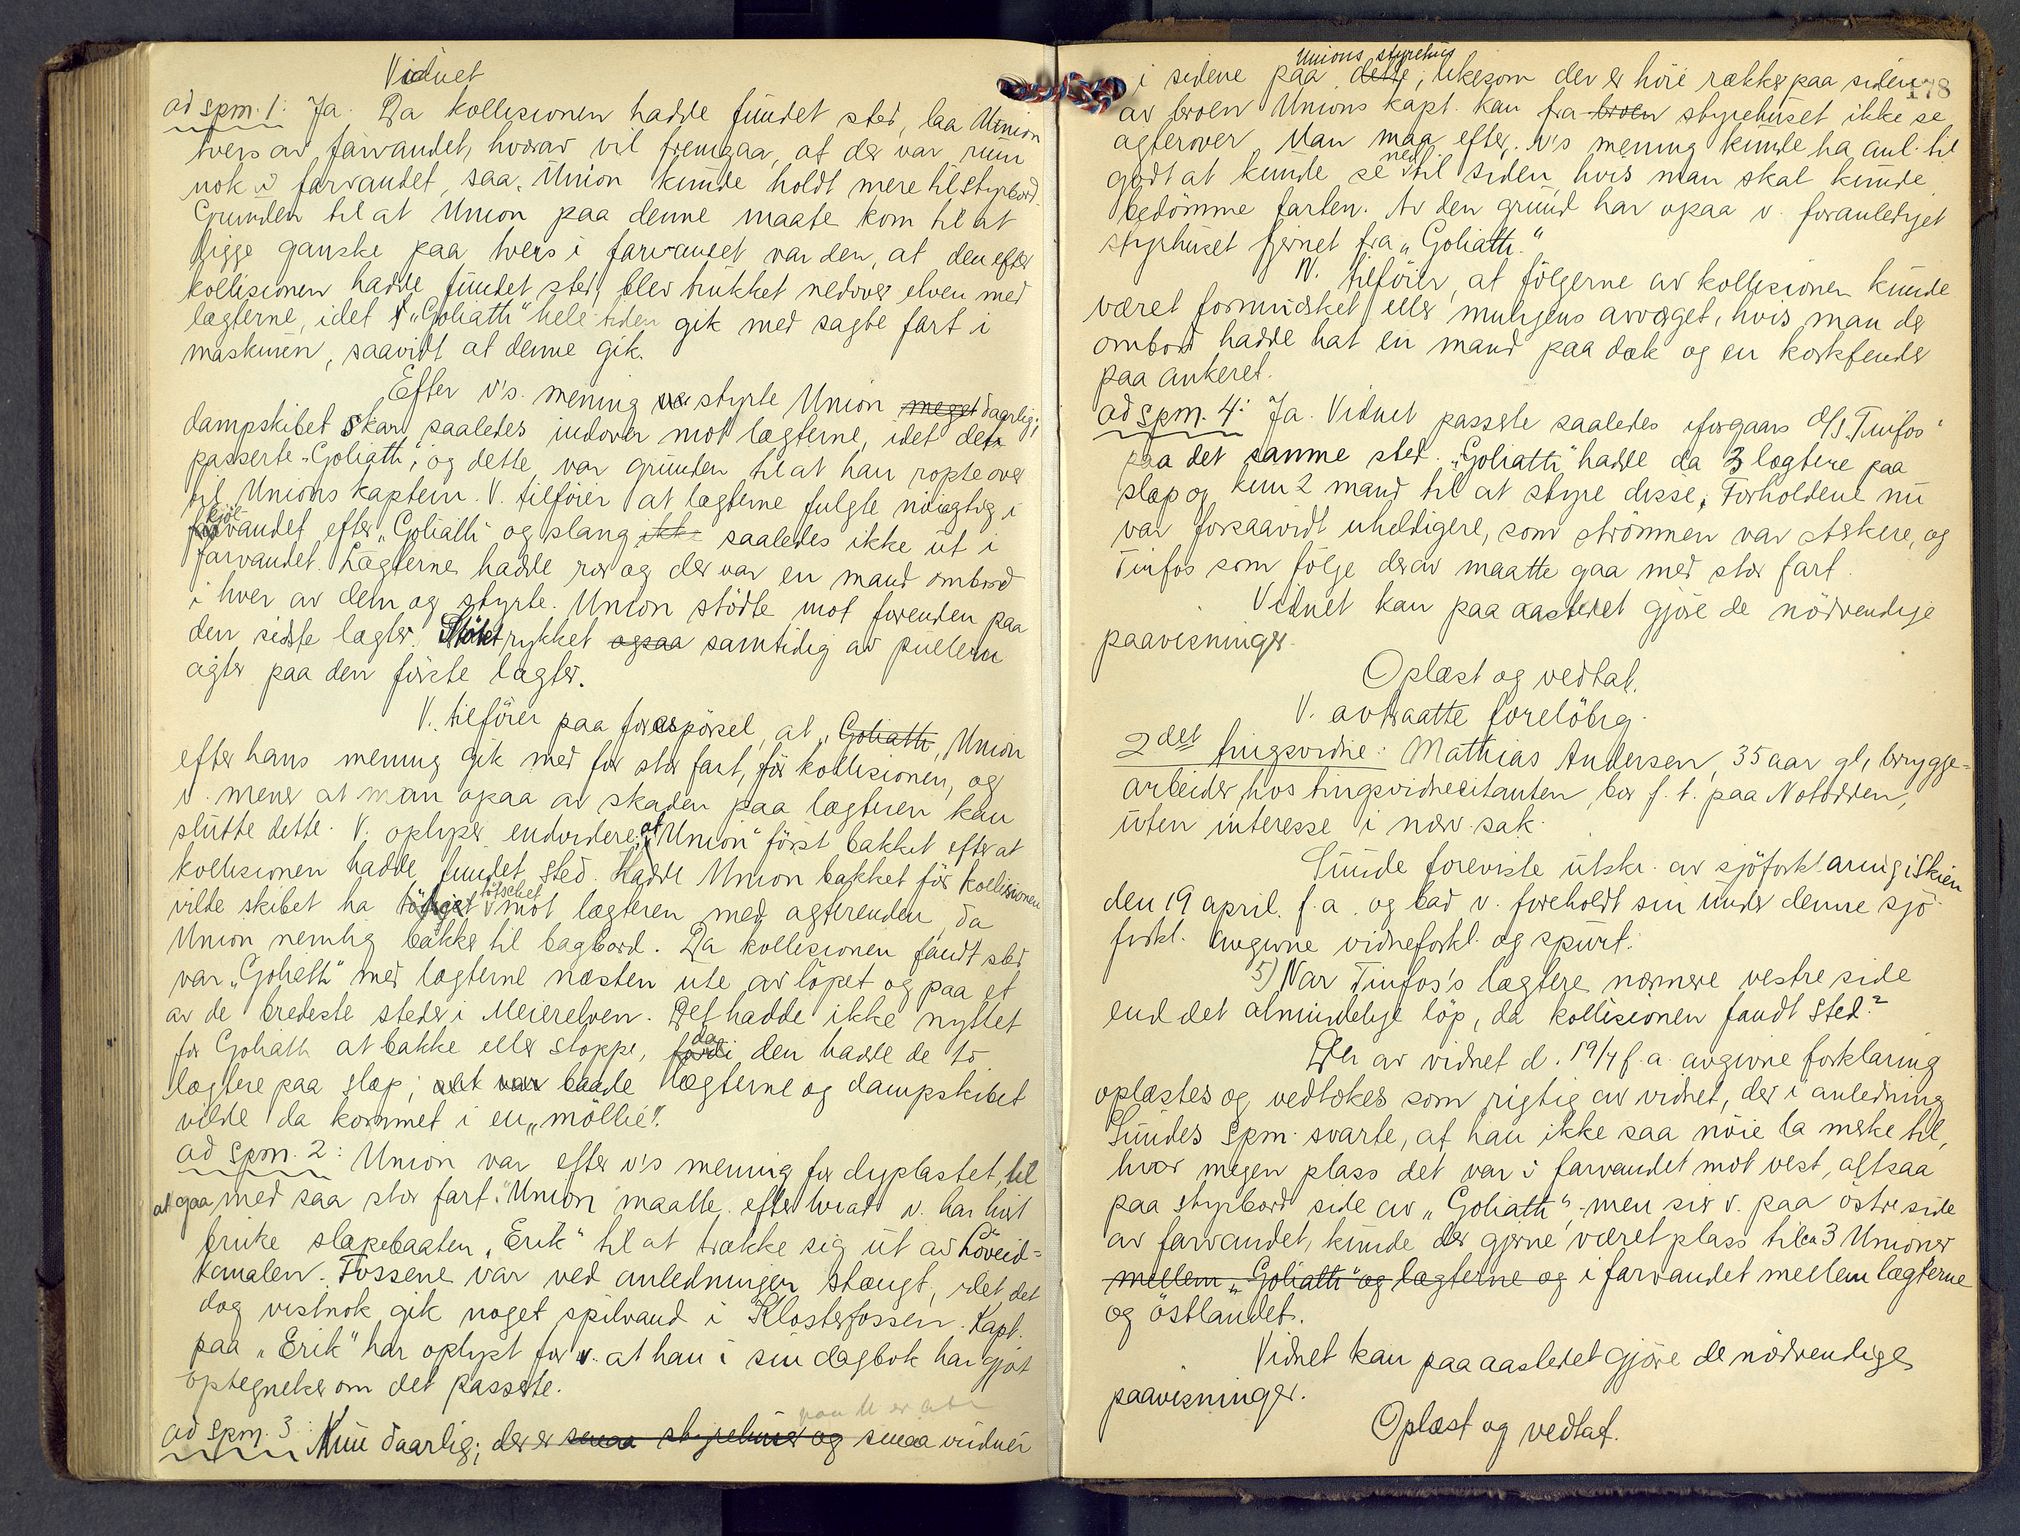 Vidnet
ad spm. 1: Ja. Da kollisionen hadde fundet sted, laa Union
tvers av farvandet, hvorav vil fremgaa, at der var rum
nok i farvandet, saa Union kunde holdt mere til styrbord.
Grunden til at Union paa denne maate kom til at
ligge ganske paa tvers i farvandet var den, at den efter
kollisionen hadde fundet sted, blev trukket nedover elven med
lægterne, idet "Goliath" hele tiden gik med sagte fart i
maskinen, saavidt at denne gik.
Efter v's. mening styrte Union meget daarlig;
dampskibet skar saaledes indover mot lægterne, idet den
passerte "Goliath", og dette var grunden til at han ropte over
til Unions kaptein. V. tilföier at lægterne fulgte nöiagtig i
kjöl-
vandet efter "Goliath" og slang ikke saaledes ikke ut i
farvandet. Lægterne hadde ror og der var en mand ombord
i hver av dem og styrte. Union stödte mot forenden paa
den sidste lægter. Stötet rykket ogsaa samtidig av pullern
agter paa den förste lægter.
V. tilförer paa forespörsel, at "Goliath", Union
efter hans mening gik med for stor fart, för kollisionen, og
v. mener at man ogsaa av skaden paa lægteren kan
slutte dette. V. oplyser endvidere, at "Union" först bakket efter at
kollisionen hadde fundet sted. Hadde Union bakket för kollisionen
vilde skibet ha tötschet mot lægteren med agterenden, da
Union nemlig bakker til bagbord. Da kollisionen fandt sted
var "Goliath" med lægterne næsten ute av löpet og paa et
av de bredeste steder i Meierelven. Det hadde ikke nyttet
for Goliath at bakke eller stoppe, fordi da den hadde de to
lægtere paa slæp; det var baade lægterne og dampskibet
vilde da kommet i en "möllie".
ad spm. 2: Union var efter v's mening for dyplastet, til
at gaa med saa stor fart. "Union" maatte efter hvad v. har hört
bruke slæpebaaten "Erik" til at trække sig ut av Löveid-
kanalen. Fossene var ved anledningen stængt, idet det
dog vistnok gik noget spilvand i Klosterfossen. Kapt.
paa "Erik" har oplyst for v. at han i sin dagbok har gjöt
optegnelser om det passerte.
ad spm. 3: Kun daarlig; der er smaa styrehuser og smaa vinduer
178
Unions styrehus
i sidene paa dette, likesom der er höie rækker paa siden
av broen Unions kapt. kan fra broen styrehuset ikke se
agterover. Man maa efter v's mening kunde ha anl. til
godt at kunde se ned til siden, hvis man skal kunde
bedömme farten. Av den grund har ogsaa v. foranlediget
styrhuset fjernet fra "Goliath."
V. tilföier, at fölgerne av kollisionen kunde
været formindsket eller muligens avværget, hvis man der
ombord hadde hat en mand paa dæk og en korkfender
paa ankeret.
ad spm. 4: Ja. Vidnet passerte saaledes iforgaars D/S "Tinfos"
paa det samme sted. "Goliath" hadde da 3 lægtere paa
slæp og kun 2 mand til at styre disse. Forholdene nu
var forsaavidt uheldigere, som strömmen var sterkere, og
Tinfos som fölge derav maatte gaa med stor fart.
Vidnet kan paa aastedet gjöre de nödvendige
paavisninger.
Oplæst og vedtat.
V. avtraatte forelöbig.
2det tingsvidne: Mathias Andersen, 35 aar gl, brygge-
arbeider hos tingsvidnecitanten, bor f. t. paa Notodden,
uten interesse i nærv. sak.
Sunde foreviste utskr. av sjöforklaring i Skien
den 19 april f. a. og bad v. foreholdt sin under denne sjö-
forkl. avgivne vidneforkl. og spurt:
5) Var Tinfos's lægtere nærmere vestre side
end det almindelige löp, da kollisionen fandt sted?
Den av vidnet d. 19/4 f. a. avgivne forklaring
oplæstes og vedtokes som rigtig av vidnet, der i anledning
Sundes spm. svarte, at han ikke saa nöie la merke til,
hvor megen plass det var i farvandet mot vest, altsaa
paa styrbord side av "Goliath", men sier v. paa östre side
av farvandet, kunde der gjerne været plass til ca 3 Unioner
mellem "Goliath" og lægterne og i farvandet mellem lægterne
og östlandet.
Vidnet kan paa aastedet gjöre de nödvendige
paavisninger.
Oplæst og vedtat.